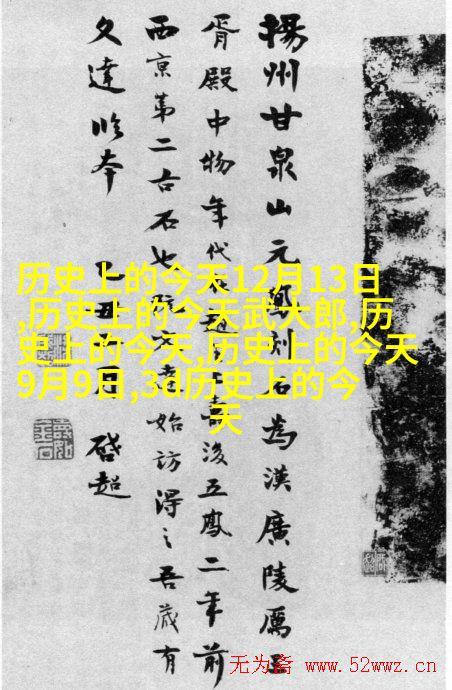 揚州甘泉山元鳳刻石為漢廣陵厲王
胥殿中物年代後五鳳二年前
西京第二古石也始訪得之吾歲有
文達本
乙丑月 啓超
历史上的今天12月13日
,历史上的今天武大郎,历
史上的今天,历史上的今天
9月9日,3d历史上的今
天
无为斋 www.52wwz.cn